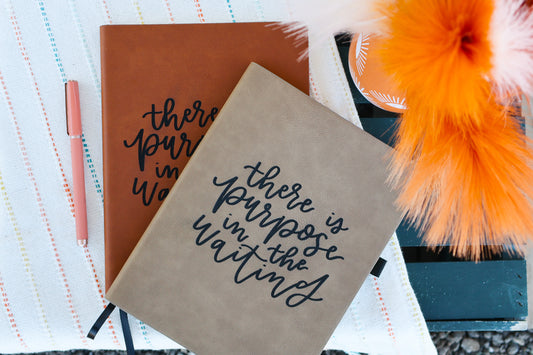 there
purpose
in
wa
there is
purpose
in the
waiting